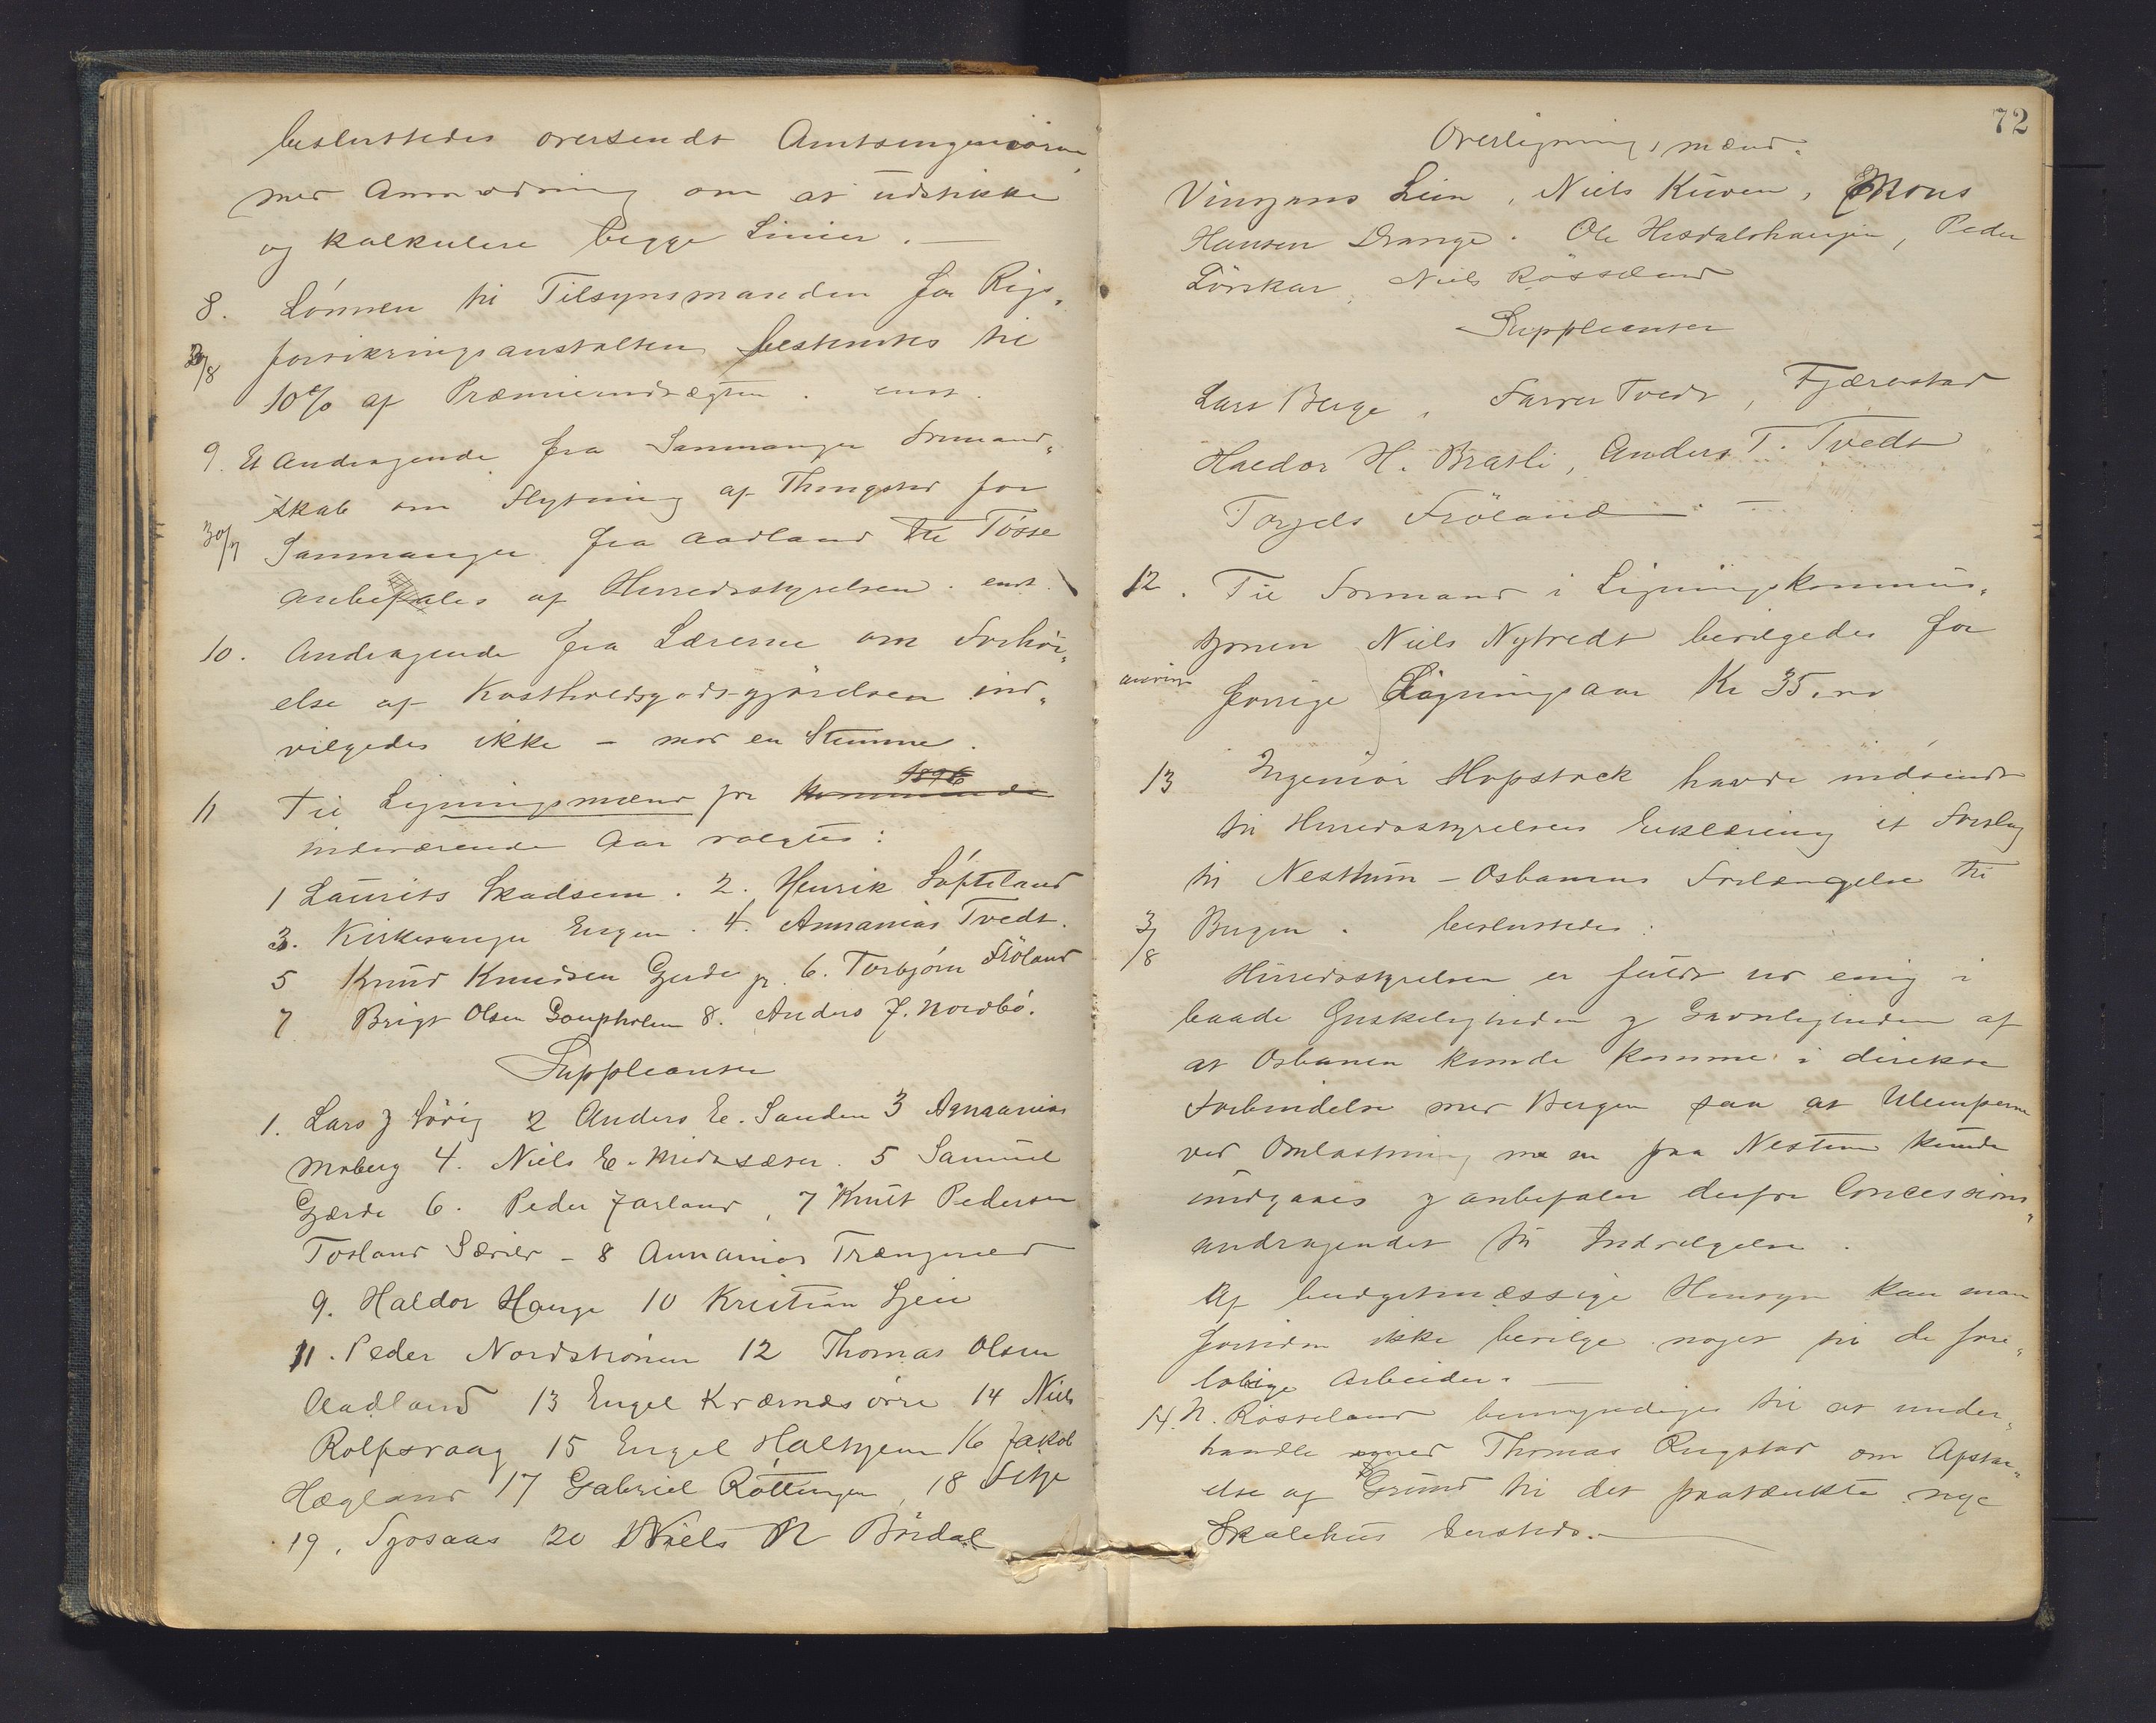 besluttedes oversendt Amtsingeniøren
med Anmodning om at udstikke
og kalkulere begge Linier. —
8. Lønnen til Tilsynsmanden for Rigs„
forsikringsanstalten bestemtes til
/8
10% af Præmieindtægten. enst.
9. Et Andragende fra Samnanger Formand„
skab om Flytning af Thingsted for
30/7 Samnanger fra Aadland til Tøsse
anbefales af Herredsstyrelsen. enst.
10. Andragende fra Lærerne om Forhøi„
else af Kostholdsgodtgjørelsen ind„
vilgedes ikke – mod en Stemme.
1896
11 Til Ligningsmænd for kommende
indeværende Aar valgtes:
1 Laurits Skadsem. 2. Henrik Søfteland
3. Kirkesanger Engen. 4. Annanias Tvedt.
5 Knud Knudsen Gjerde jr. 6. Torbjørn Frøland
7 Brigt Olsen 8. Anders J. Nordbø.
Suppleanter
1. Lars J Sørig 2 Anders E. Sanden 3 Annanias
Moberg 4. Niels E. Midtsæter. 5 Samuel
Gjærde 6. Peder Jarland, 7 Knut Pedersen
Tosland – 8 Annanias Trængereid
9. Haldor Hauge 10 Kristian Lyen
11. Peder Nordstrønen 12 Thomas Olsen
Aadland 13 Engel Kværnesøvre 14 Niels
Rolfsvaag 15 Engel Halhjem 16 Jakob
Hægland 17 Gabriel Røttingen, 18
19. 20 Niels N Børdal
72
Overligningsmænd.
Vingjans Lien, Niels Kuven, Mons
Hansen Drange. Ole Hisdalshaugen, Peder
Lørskar, Niels Røsseland
Suppleanter
Lars Berge, Tvedt, Fjærestad
Haldor H. Bratli, Anders T. Tvedt
Torgels Frøland. —
12. Til Formand i Ligningskommis„
sjonen Niels Nytvedt bevilgedes for
anvist
forrige Ligningsaar Kr 35.00
13 Ingeniør Hopstock havde indsendt
til Herredsstyrelsens Erklæring et Forslag
til Nesttun – Osbanens Forlængelse til
3/8 Bergen. besluttedes:
Herredsstyrelsen er fuldt ud enig i
baade Ønskeligheden og Gavnligheden af
at Osbanen kunde komme i direkte
Forbindelse med Bergen saa at Ulemperne
ved Omlastning m m paa Nestun kunde
undgaaes og anbefaler derfor Concessions„
andragendet til Indvilgelse.
Af budgetmæssige Hensyn kan man
fortiden ikke bevilge noget til de fore„
løbige Arbeider. —
14. N. Røsseland bemyndiges til at under„
handle med Thomas Rugstad om Afstaa„
else af Grund til det paatænkte nye
Skolehus dersteds. —